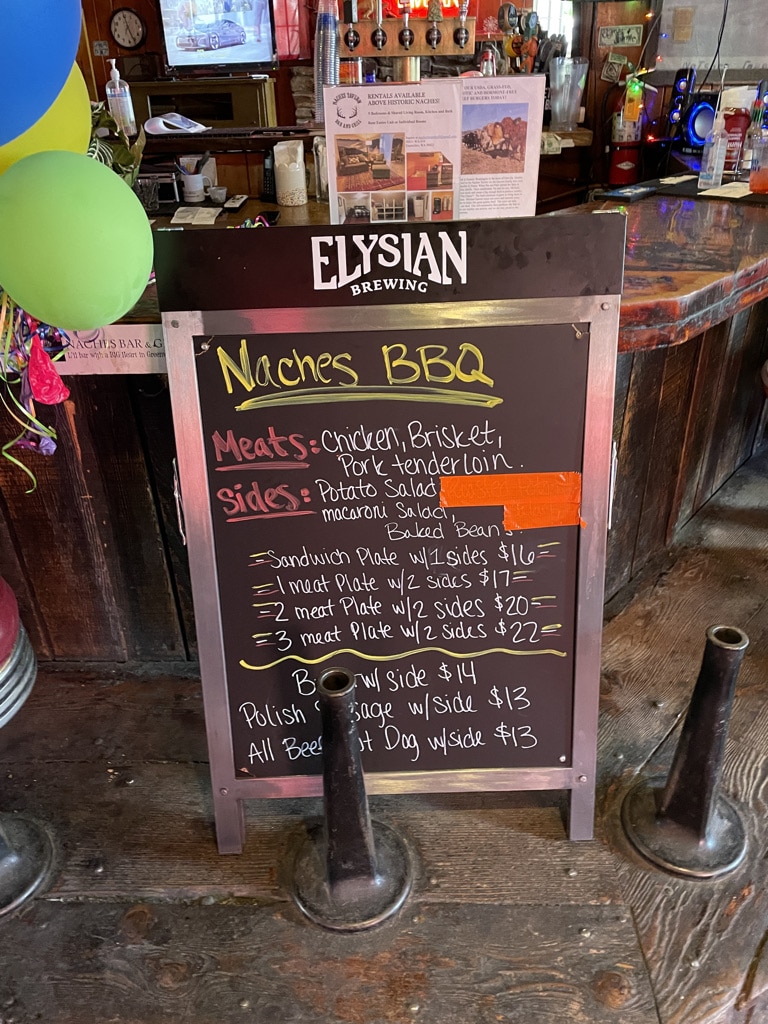 RENTALS AVAILABLE
ABOVE HISTORIC NACHES!
ELYSIAN
BREWING
NACHES BAR & G
Naches BBQ
Meats: Chicken, Brisket,
Pork tenderloin.
Sides: Potato Salad
macaroni Salad
Baked Beans.
Sandwich Plate w/1 sides $16
1 meat Plate w/2 sides $17
2 meat Plate w/2 sides $20
3 meat Plate w/2 sides $22
w/side $14
Polish sage w/side $13
All Beef ot Dog w/side $13